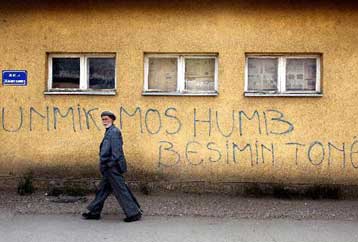 UNMIK MOS HUMB
BESIMIN TONË